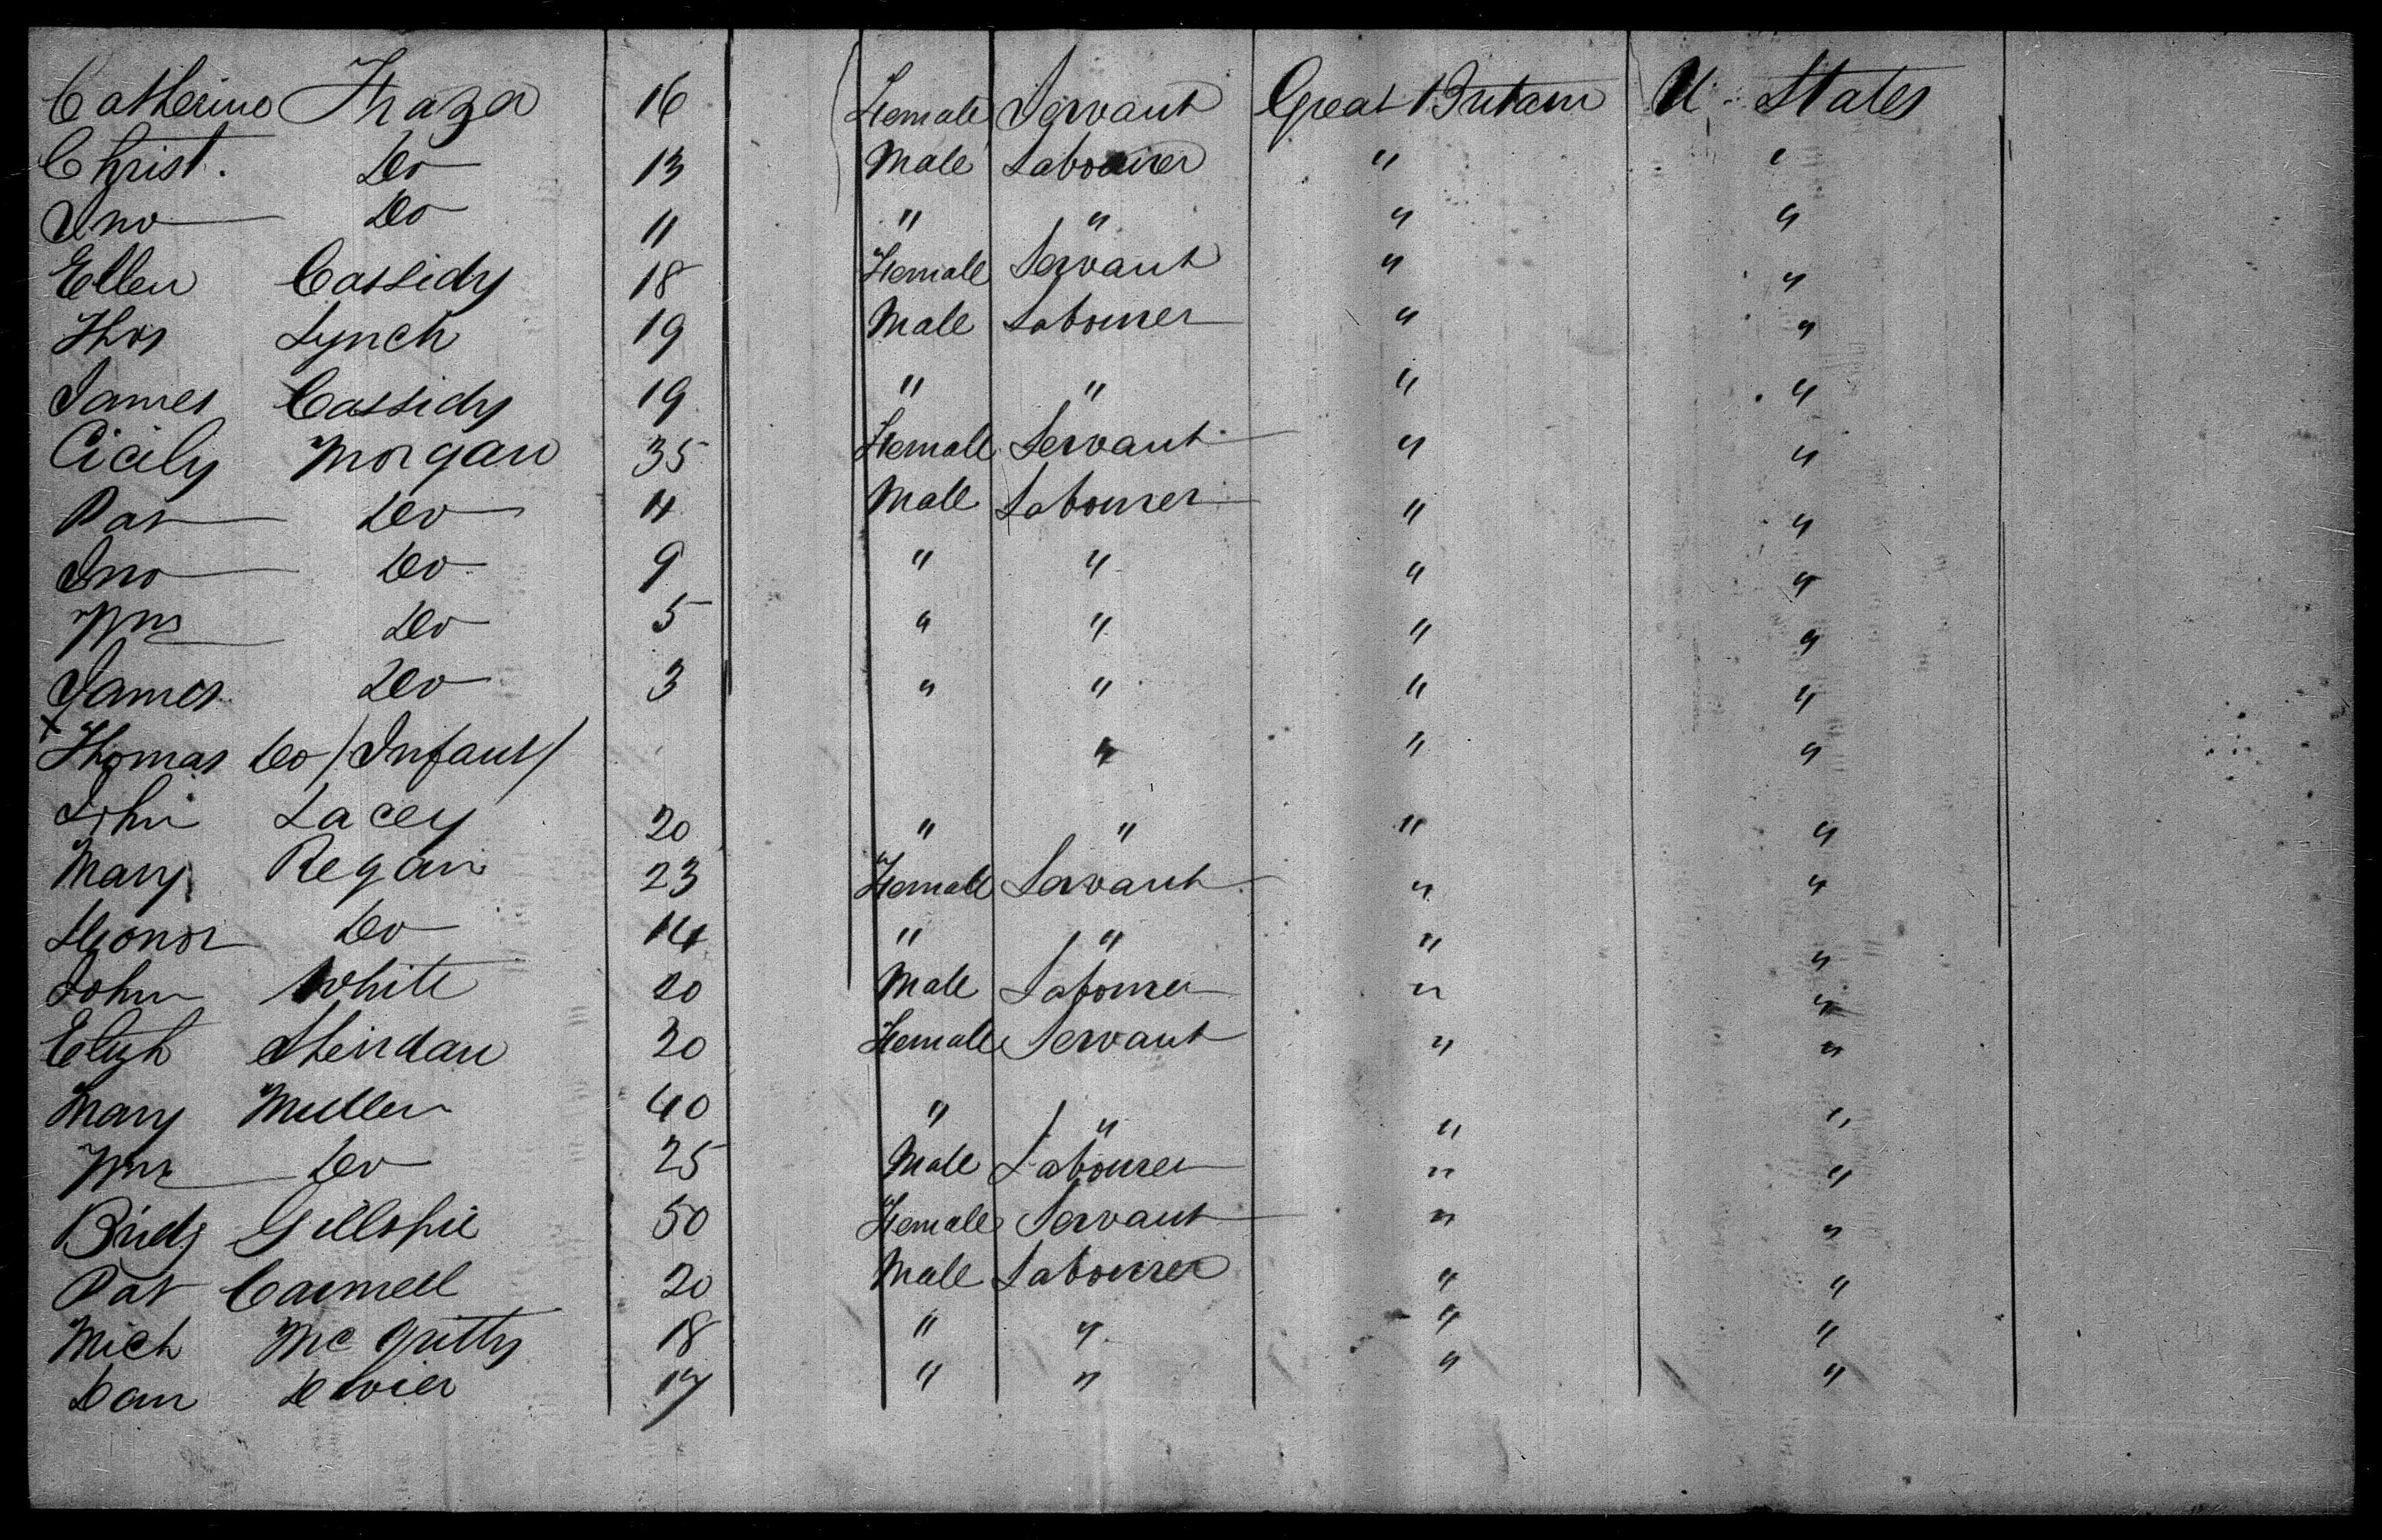 Catherine Frazer 16 Female Servant Great Britain U States
Christ. Do 13 Male Labourer " "
Jno Do 11 " " " "
Ellen Cassidy 18 Female Servant " "
Thos Lynch 19 Male Labourer " "
James Cassidy 19 " " " "
Cicily Morgan 35 Female Servant " "
Pat Do 11 Male Labourer " "
Jno Do 9 " " " "
Wm Do 5 " " " "
James Do 3 " " " "
x Thomas Do / Infant / " " "
John Lacey 20 " " " "
Mary Regan 23 Female Servant " "
Honor Do 14 " " " "
John White 20 Male Labourer " "
Elizh Sheridan 20 Female Servant " "
Mary Mullen 40 " " " "
Wm Do 25 Male Labourer " "
Bridg Gillspie 50 Female Servant " "
Pat 20 Male Labourer " "
Mich Mc Gritty 18 " " " "
Dan 17 " " " "